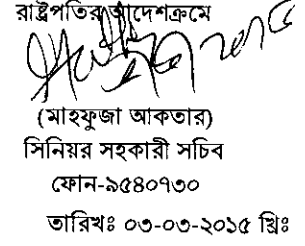 রাষ্ট্রপতির আদেশক্রমে
(মাহফুজা আকতার)
সিনিয়র সহকারী সচিব
ফোন-৯৫৪০৭৩০
তারিখঃ ০৩-০৩-২০১৫ খ্রিঃ